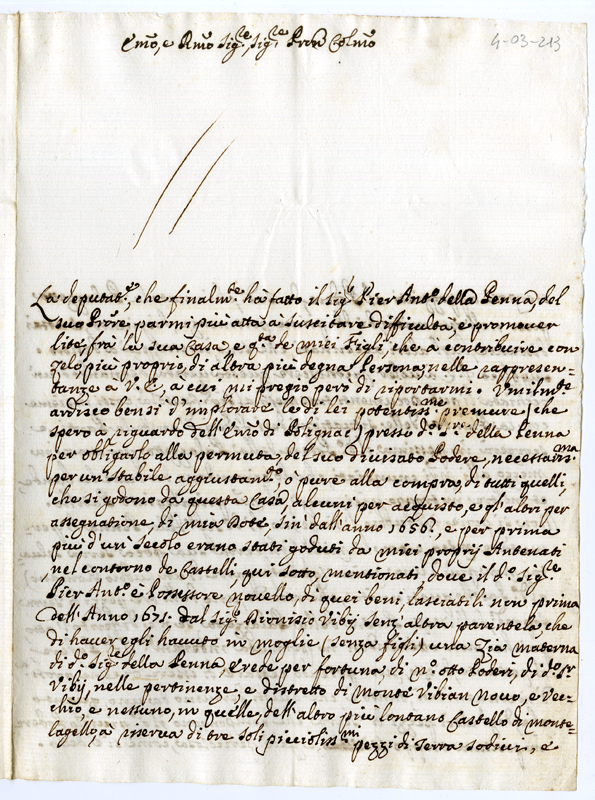 Emo, e Rmo Sigre, Sigre Pron Colmo
4-03-213
La deputatne, che finalmte ha fatto il Sigr Pier Anto della Penna, del
suo Priore parmi più atta à suscitare difficultà, e promover
lite, frà la sua Casa, e qta de miei Figli, che à contribuire con
zelo, più proprio, di altra più degna Persona, nelle rappresen-
tanze à V. E., à cui mi pregio però di riportarmi. Umilmte
ardisco bensì d'implorare le di lei potentissme premure (che
spero à riguardo dell'Emo di Polignac) presso do Sre della Penna
per obligarlo alla permuta, del suo divisato Podere, necessarissma
per un stabile aggiustamto, ò pure alla compra, di tutti quelli,
che si godono da questa Casa, alcuni per acquisto, e gl'altri per
assegnatione, di mia Dote, sin dall'anno 1656, e per prima
più d'un secolo erano stati goduti da miei proprij Antenati
nel contorno de Castelli, qui sotto, mentionati, dove il do Sigre
Pier Anto è Possessore novello, di quei beni, lasciatili non prima
dell'Anno 1671. dal Sigr Dionisio Vibij senz'altra parentela, che
di haver egli havuto in moglie (senza figli) una Zia materna
di do Sigre della Penna, Erede per fortuna, di no otto Poderi, di do Sr
Vibij, nelle pertinenze, e distretto di Monte Vibian novo, e Vec-
chio, e nessuno, in quelle, dell'altro più lontano Castello di Monte-
lagello, à riserva di tre soli picciolissmi pezzi di Terra sodivi, e